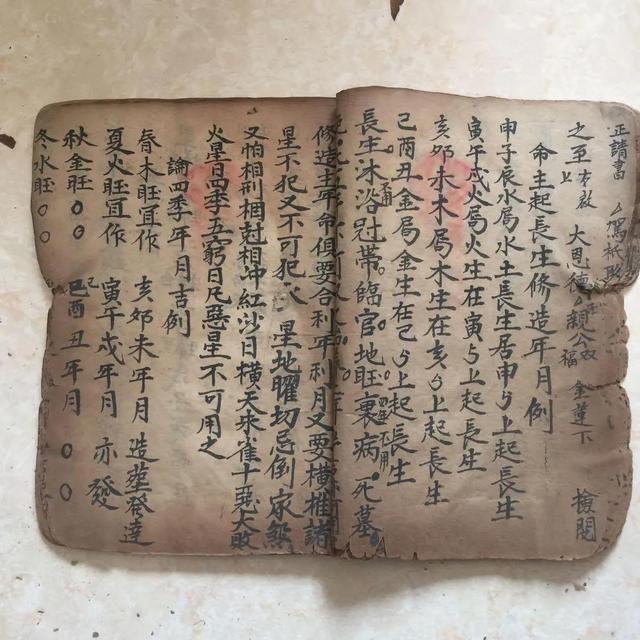 正請當
之至 大 德 親公 金蓮下 檢閱
命主起長生修造年月例
申子辰水局水土長生居申上起長生
寅午戌火局火生在寅上起長生
亥卯未木局木生在亥上起長生
巳酉丑金局金生在巳上起長生
長生沐浴冠帶臨官地旺衰病死墓
修造主年命但要合利年利月又要横推諸
星不犯又不可犯 星地曜切忌倒家煞
又怕相刑相尅相冲紅沙日横天朱雀十惡大敗
火星日四季五窮日凡惡星不可用之
論四季年月吉例
春木旺宜作 亥卯未年月 造塟發達
夏火旺宜作 寅午戌年月 亦發
秋金旺〇〇 巳酉丑年月 〇〇
冬水旺〇〇